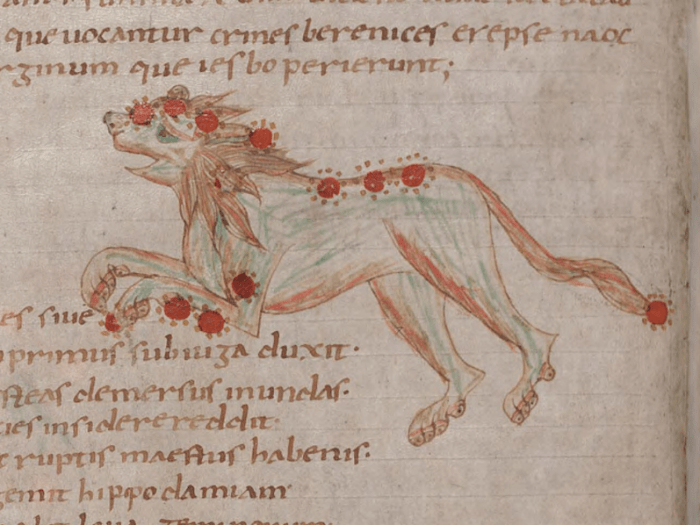 que uocantur crines berenices erepse naoc
rginum que ies bo perierunt;
es siue
primus subiuga duxit.
demersus inundas.
insidere reddit
ruptis maestus habenis.
genuit hippodamiam